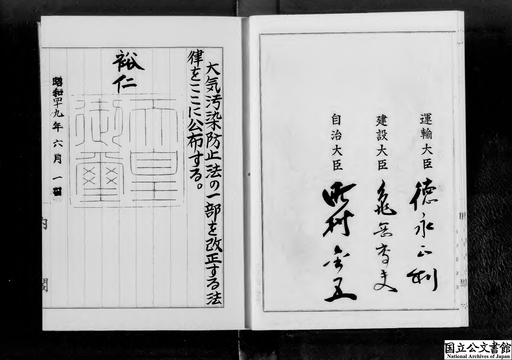 運輸大臣 德永正利
建設大臣 亀岡高夫
自治大臣 町村金五
大気汚染防止法の一部を改正する法
律をここに公布する。
裕仁
天皇
御璽
昭和四十九年 六月 一日
内閣
国立公文書館
National Archives of Japan